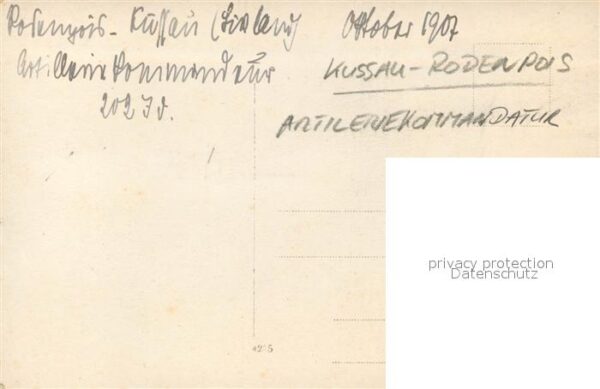 Rodenpois - Kussau (Livland) Oktober 1907
Artilleriekommandeur
202 Jd.
KUSSAU-RODENPOIS
ARTILERIEKOMMANDATUR
privacy protection
Datenschutz